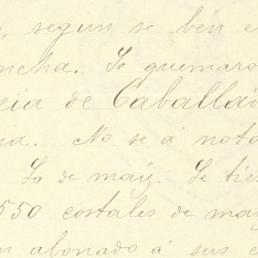 , segun se bén e
ncha. Se quemaro
eia de Caballa
na. No se á nota
La de maiz. Se tie
550 costales de ma
n abonado á sus c